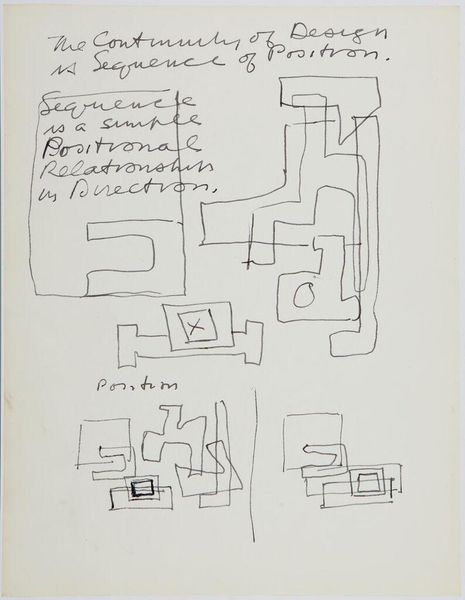 The Continuity of Design
is Sequence of Position.
Sequence
is a simple
Positional
Relationship
in Direction.
X
O
Position